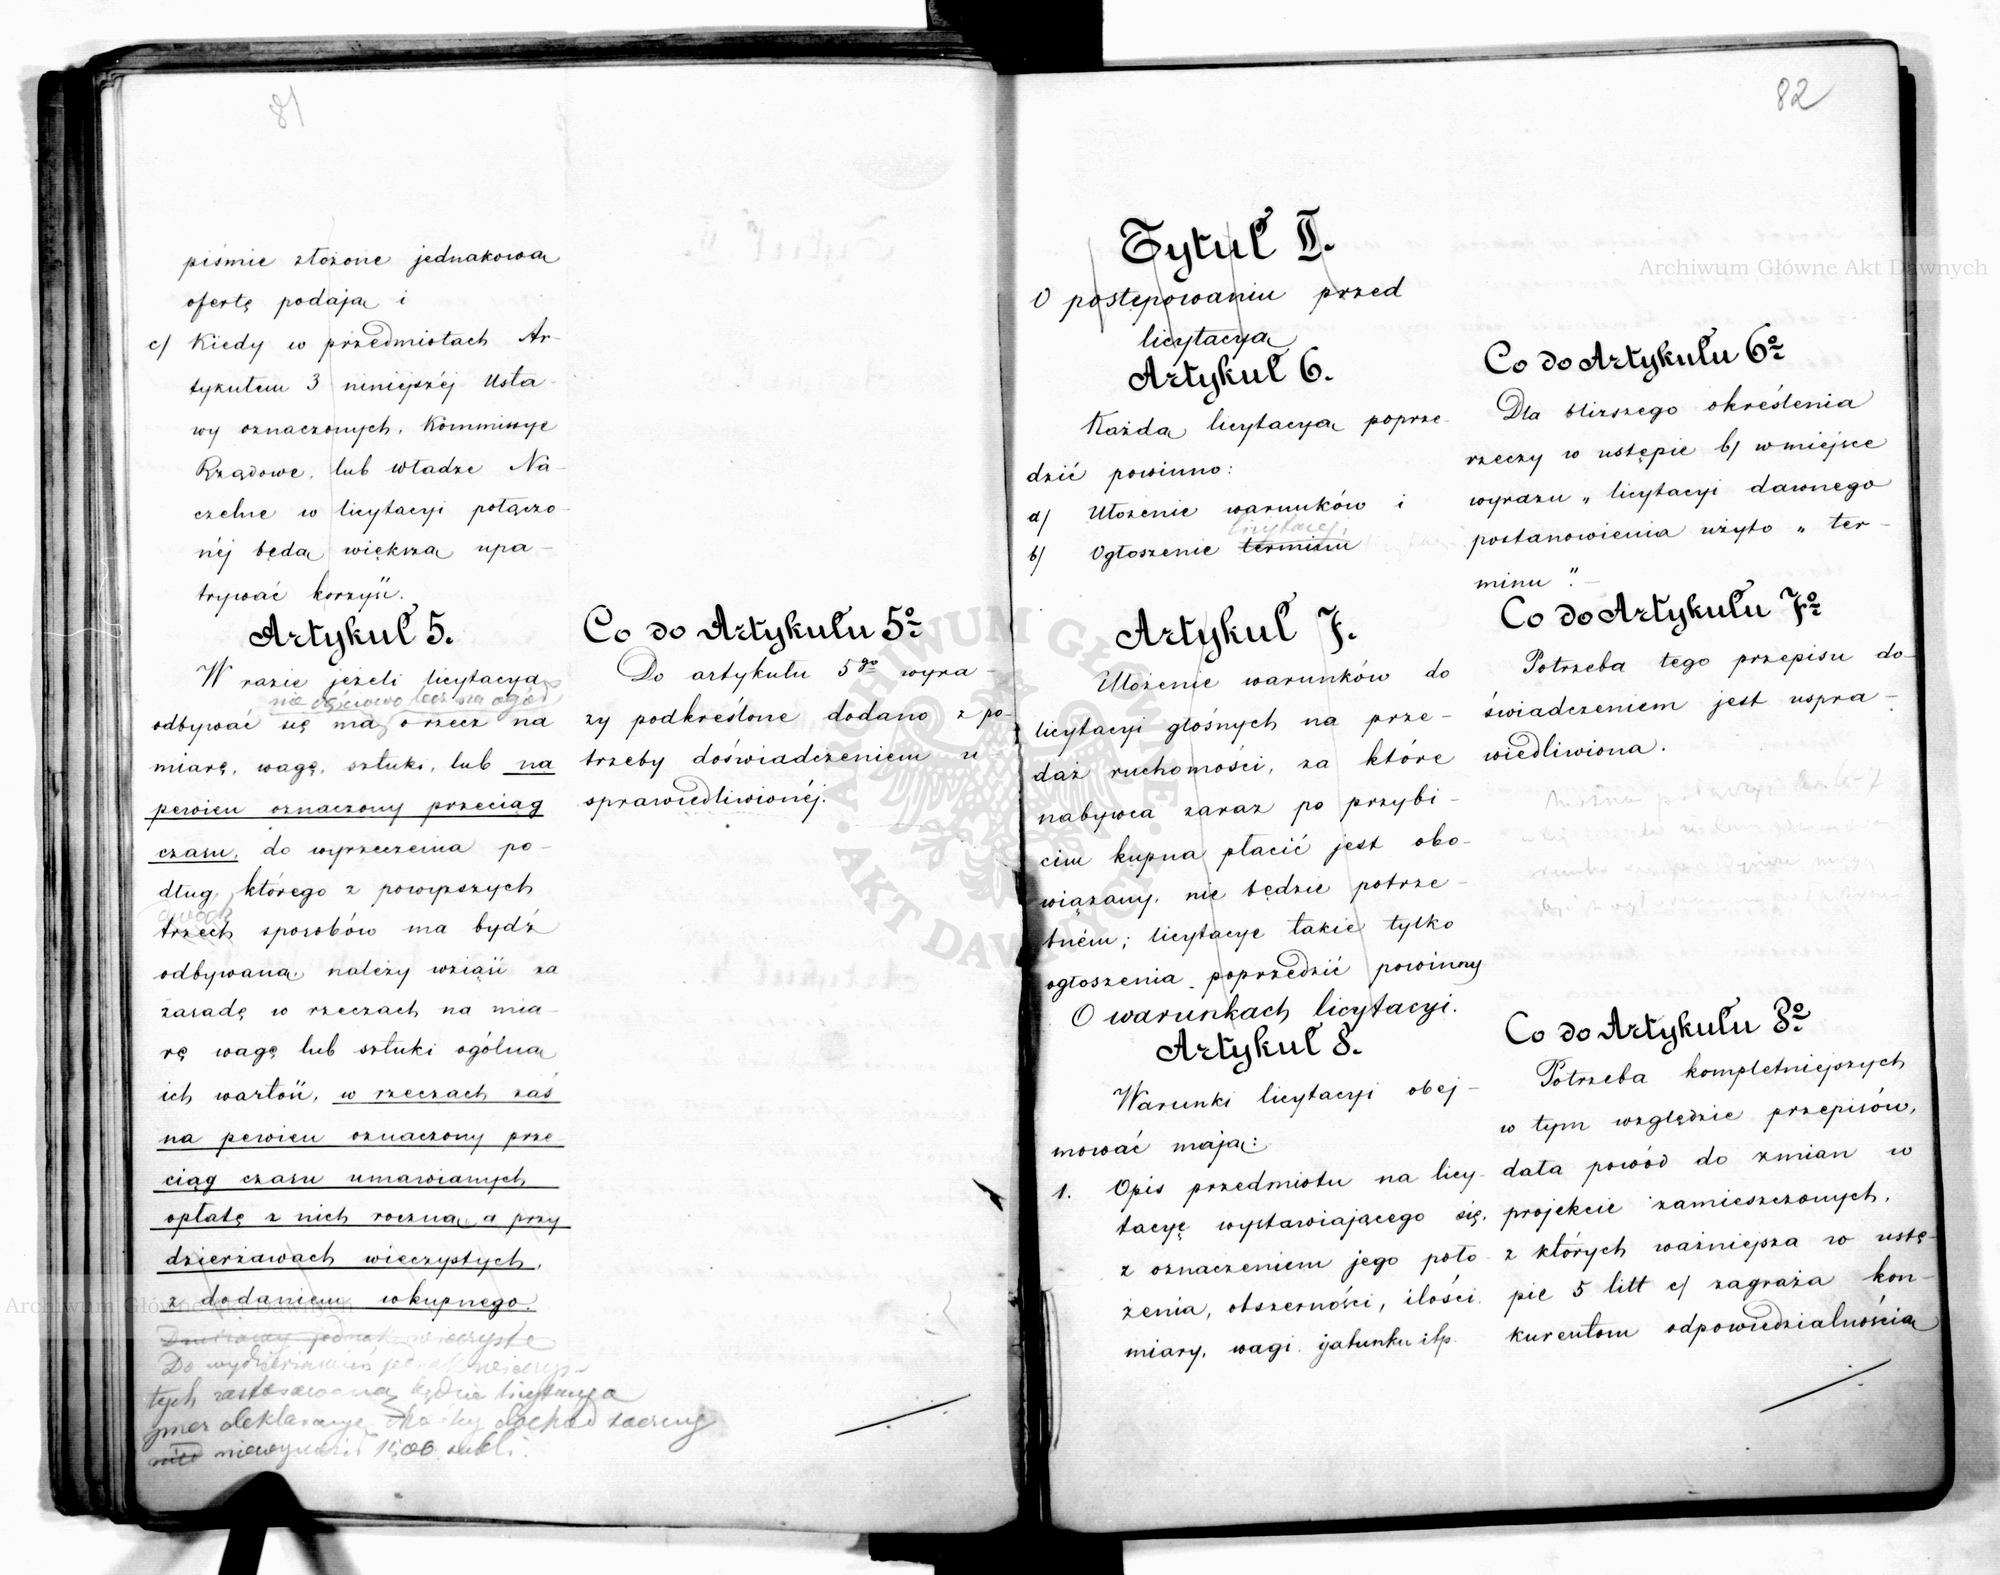 81
piśmie złożone jednakową
ofertę podają i
c/ Kiedy w przedmiotach Ar-
tykułem 3 niniejszéj Usta-
wy oznaczonych, Kommissye
Rządowe, lub władze Na-
czelne w licytacyi połączo-
néj będą większą upa-
trywać korzyść.
Artykuł 5.
W razie jeżeli licytacya
nie ogółowo lecz na
odbywać się ma, o rzecz na
miarę, wagę, sztuki, lub na
pewien oznaczony przeciąg
czasu, do wyrzeczenia po-
dług którego z powyższych
dwóch
trzech sposobów ma bydź
odbywana, należy wziąść za
zasadę w rzeczach na mia-
rę wagę lub sztuki ogólną
ich wartość, w rzeczach zaś
na pewien oznaczony prze-
ciąg czasu umawianych
opłatę z nich roczną, a przy
dzierżawach wieczystych,
z dodaniem wkupnego.
jednak wieczyste
Do wydzierżawień jednak wieczys-
tych zastosowaną będzie licytacya
przez deklaracye, dochód
niewynosił 1500 rubli.
Co do Artykułu 5o
Do artykułu 5go wyra-
zy podkreślone dodano z po-
trzeby doświadczeniem u-
sprawiedliwionéj.
82
Tytuł II.
O postępowaniu przed
licytacyą
Artykuł 6.
Każdą licytacyą poprze-
dzić powinno:
a/ Ułożenie warunków i
licytacyi
b/ Ogłoszenie terminu
Artykuł 7.
Ułożenie warunków do
licytacyi głośnych na prze-
daż ruchomości, za które
nabywca zaraz po przybi-
ciu kupna płacić jest obo-
wiązany, nie będzie potrze-
bném; licytacye takie tylko
ogłoszenia poprzedzić powinny
O warunkach licytacyi.
Artykuł 8.
Warunki licytacyi obej-
mować mają:
1. Opis przedmiotu na licy-
tacyę wystawiającego się,
z oznaczeniem jego poło-
żenia, obszerności, ilości
miary, wagi gatunku itp.
Co do Artykułu 6o
Dla bliższego określenia
rzeczy w ustępie b/ w miejsce
wyrazu „licytacyi dawnego
postanowienia użyto „ter-
minu”.
Co do Artykułu 7o
Potrzeba tego przepisu do-
świadczeniem jest uspra-
wiedliwiona.
Co do Artykułu 8o
Potrzeba kompletniejszych
w tym względzie przepisów,
dała powód do zmian w
projekcie zamieszczonych,
z których ważniejsza w ustę-
pie 5 litt c/ zagraża kon-
kurentom odpowiedzialnością
Archiwum Główne Akt Dawnych
Archiwum Główne Akt Dawnych
ARCHIWUM GŁÓWNE AKT DAWNYCH